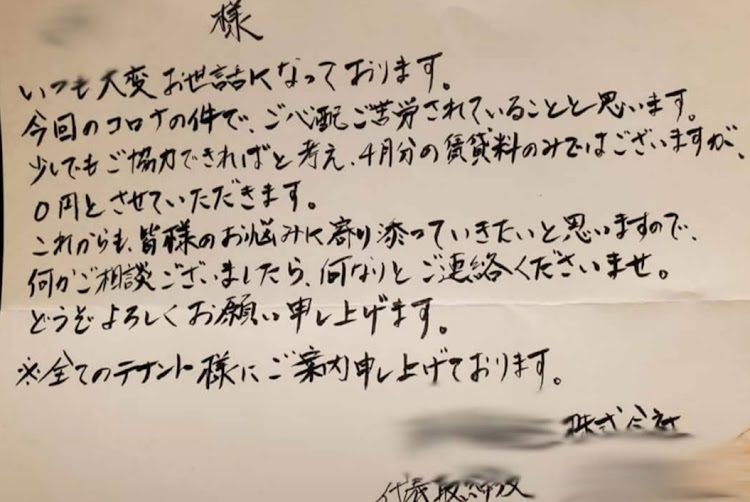 様
いつも大変お世話になっております。
今回のコロナの件で、ご心配ご苦労されていることと思います。
少しでもご協力できればと考え、4月分の賃貸料のみではございますが、
0円とさせていただきます。
これからも、皆様のお悩みに寄り添っていきたいと思いますので、
何かご相談ございましたら、何なりとご連絡くださいませ。
どうぞよろしくお願い申し上げます。
※全てのテナント様にご案内申し上げております。
株式会社
代表取締役